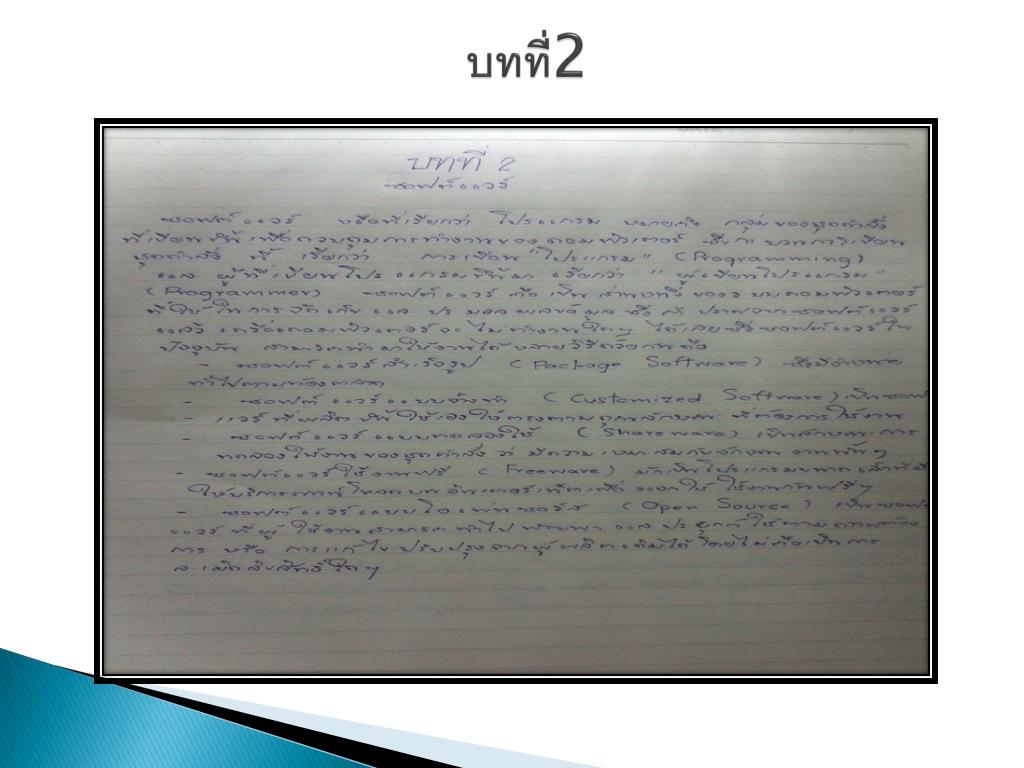 บทที่2
บทที่ 2
ซอฟต์แวร์
ซอฟต์แวร์ หรือที่เรียกว่า โปรแกรม หมายถึง กลุ่มของชุดคำสั่ง
ที่เขียนให้ เพื่อควบคุมการทำงานของคอมพิวเตอร์ ซึ่งกระบวนการเขียน
ชุดคำสั่ง นี้ เรียกว่า การเขียน "โปรแกรม" (Programming)
และ ผู้ที่เขียนโปรแกรมนี้ เรียกว่า " ผู้เขียนโปรแกรม"
(Programmer) ซอฟต์แวร์ คือ เป็น ส่วนหนึ่ง ของระบบคอมพิวเตอร์
ที่ใช้ ในการ จัดเก็บ และ ประมวลผลข้อมูล ซึ่ง ปราศจากซอฟต์แวร์
แล้ว เครื่องคอมพิวเตอร์จะไม่ทำงานใดๆ ได้เลยซึ่งซอฟต์แวร์ใน
ปัจจุบัน สามารถนำมาใช้งานได้หลายวิธีด้วยกันคือ
- ซอฟต์แวร์สำเร็จรูป (Package Software) ซึ่งมีจำหน่าย
ทั่วไปตามท้องตลาด
- ซอฟต์แวร์แบบจ้างทำ (Customized Software) เป็นซอฟ
- แวร์ ที่ผลิต ให้ใช้เองให้ตรงตามคุณลักษณะ ที่ต้องการใช้งาน
- ซอฟต์แวร์แบบทดลองใช้ (Shareware) เป็นลักษณะการ
ทดลองใช้งานของชุดคำสั่ง ว่า มีความเหมาะสมกับลักษณะงานนั้นๆ
- ซอฟต์แวร์ใช้งานฟรี (Freeware) มักเป็นโปรแกรมขนาดเล็กที่มี
ให้บริการดาวน์โหลดบนอินเตอร์เน็ตเพื่อแจกให้ใช้งานกันฟรีๆ
- ซอฟต์แวร์แบบโอเพ่นซอร์ส (Open Source) เป็นซอฟ
แวร์ ที่ผู้ใช้งานสามารถนำไปพัฒนา และประยุกต์ใช้ตามความต้อง
การ หรือ การแก้ไข ปรับปรุงจากผู้ผลิตเดิมได้ โดยไม่ถือเป็นการ
ละเมิดลิขสิทธิ์ใดๆ